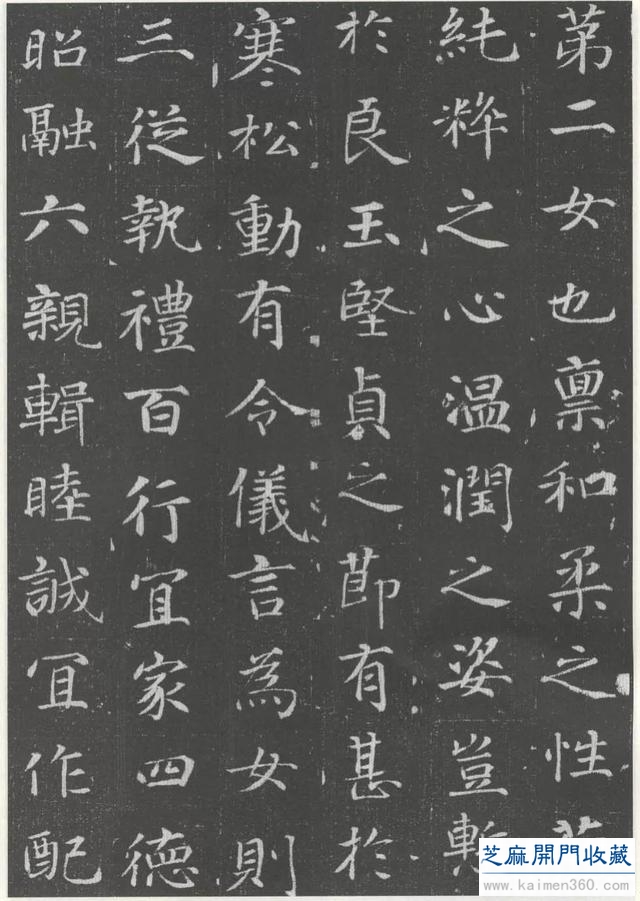 苐二女也禀和柔之性
純粹之心温潤之姿豈慙
於良玉堅貞之莭有甚於
寒松動有令儀言為女則
三從執禮百行冝家四德
昭融六親輯睦誠冝作配
芝麻開門收藏
www.kaimen360.com